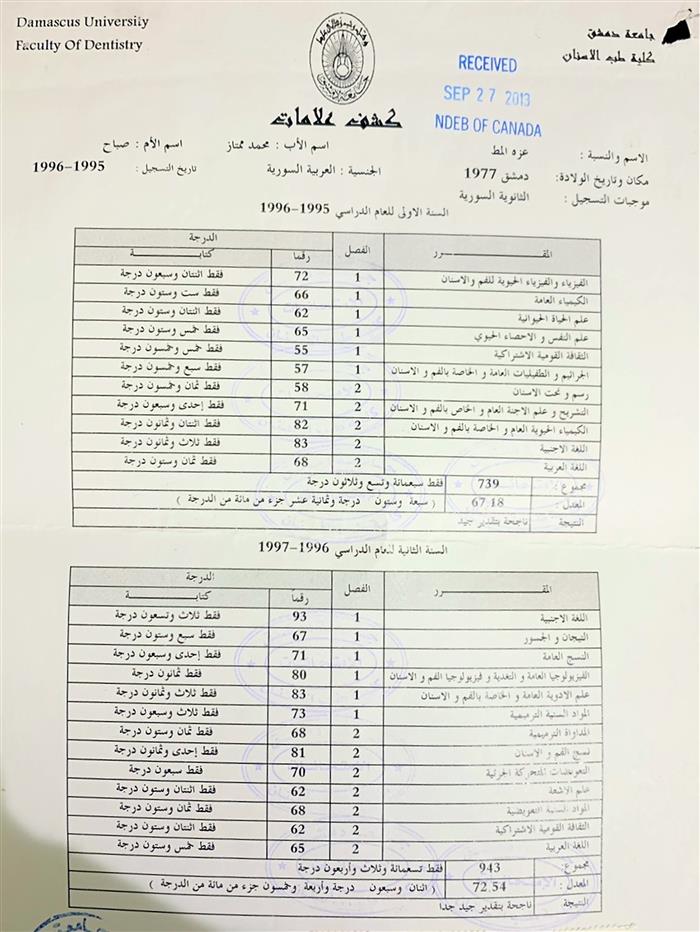 Damascus University
Faculty Of Dentistry
جامعة دمشق
كلية طب الاسنان
RECEIVED
SEP 27 2013
NDEB OF CANADA
كشف علامات
الاسم والنسبة : عزه المط اسم الأب : محمد ممتاز اسم الأم : صباح
مكان وتاريخ الولادة: دمشق 1977 الجنسية : العربية السورية تاريخ التسجيل : 1995-1996
موجبات التسجيل : الثانوية السورية
السنة الاولى للعام الدراسي 1995-1996
المقـــــرر الفصل الدرجة
رقما كتابـــــة
الفيزياء والفيزياء الحيوية للفم والاسنان 1 72 فقط اثنتان وسبعون درجة
الكيمياء العامة 1 66 فقط ست وستون درجة
علم الحياة الحيوانية 1 62 فقط اثنتان وستون درجة
علم النفس و الاحصاء الحيوي 1 65 فقط خمس وستون درجة
الثقافة القومية الاشتراكية 1 55 فقط خمس وخمسون درجة
الجراثيم و الطفيليات العامة و الخاصة بالفم و الاسنان 1 57 فقط سبع وخمسون درجة
رسم و نحت الاسنان 2 58 فقط ثمان وخمسون درجة
التشريح و علم الاجنة العام و الخاص بالفم و الاسنان 2 71 فقط إحدى وسبعون درجة
الكيمياء الحيوية العام و الخاصة بالفم و الاسنان 2 82 فقط اثنتان وثمانون درجة
اللغة الاجنبية 2 83 فقط ثلاث وثمانون درجة
اللغة العربية 2 68 فقط ثمان وستون درجة
مجموع : 739 فقط سبعمائة وتسع وثلاثون درجة
المعدل : 67.18 ( سبعة وستون درجة وثمانية عشر جزء من مائة من الدرجة )
النتيجة ناجحة بتقدير جيد
السنة الثانية للعام الدراسي 1996-1997
المقـــــرر الفصل الدرجة
رقما كتابـــــة
اللغة الاجنبية 1 93 فقط ثلاث وتسعون درجة
التيجان و الجسور 1 67 فقط سبع وستون درجة
النسج العامة 1 71 فقط إحدى وسبعون درجة
الفيزيولوجيا العامة و التغذية و فيزيولوجيا الفم و الاسنان 1 80 فقط ثمانون درجة
علم الادوية العامة و الخاصة بالفم و الاسنان 1 83 فقط ثلاث وثمانون درجة
المواد السنية الترميمية 1 73 فقط ثلاث وسبعون درجة
المداواة الترميمية 2 68 فقط ثمان وستون درجة
نسج الفم و الاسنان 2 81 فقط إحدى وثمانون درجة
التعويضات المتحركة الجزئية 2 70 فقط سبعون درجة
علم الاشعة 2 62 فقط اثنتان وستون درجة
المواد السنية التعويضية 2 68 فقط ثمان وستون درجة
الثقافة القومية الاشتراكية 2 62 فقط اثنتان وستون درجة
اللغة العربية 2 65 فقط خمس وستون درجة
مجموع: 943 فقط تسعمائة وثلاث وأربعون درجة
المعدل : 72.54 ( اثنان وسبعون درجة وأربعة وخمسون جزء من مائة من الدرجة )
النتيجة ناجحة بتقدير جيد جدا